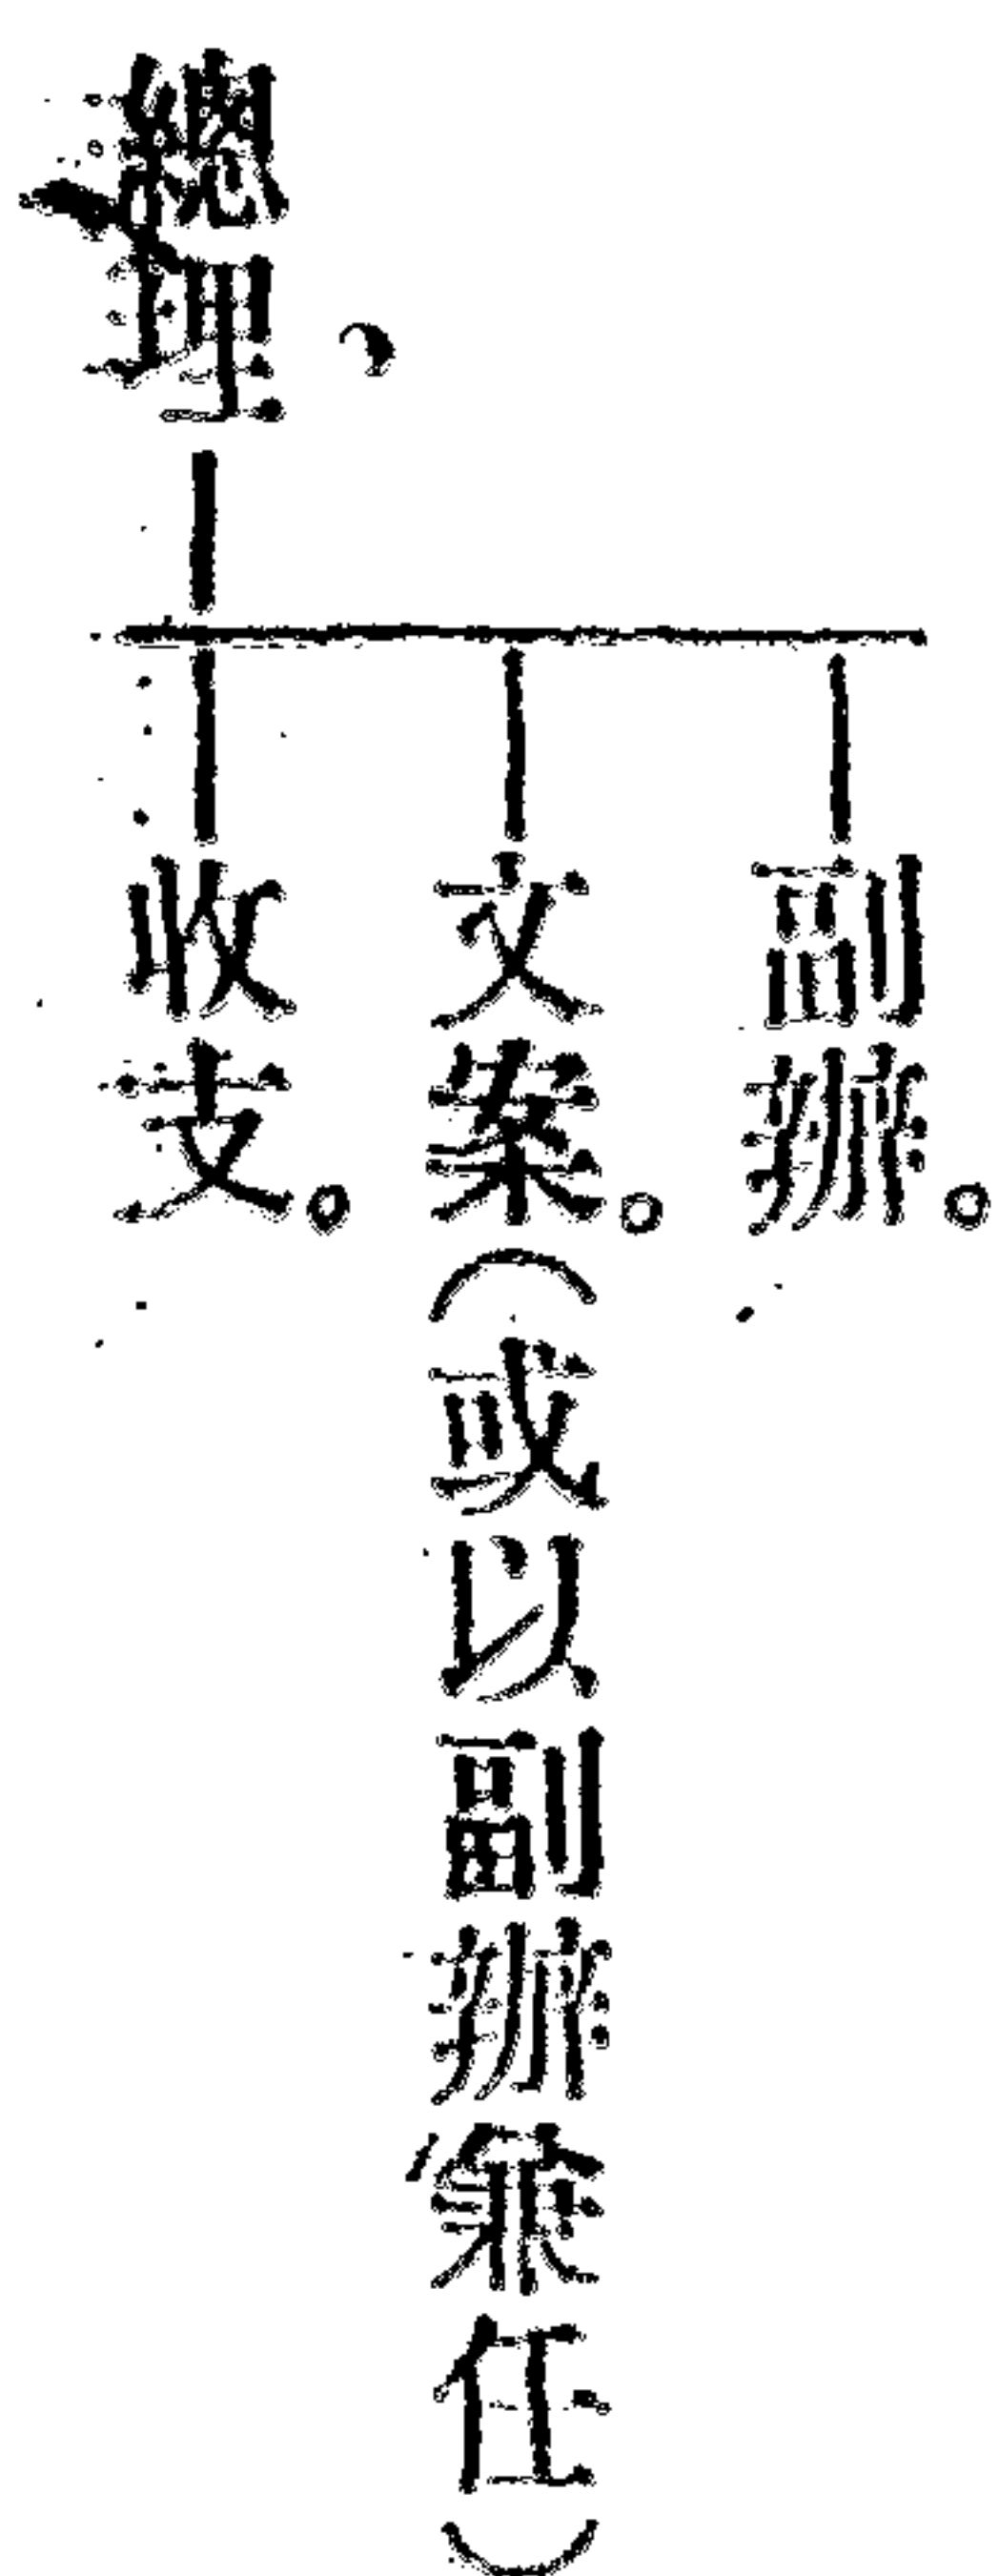 總理、
副辦。
文案。（或以副辦兼任）
收支。